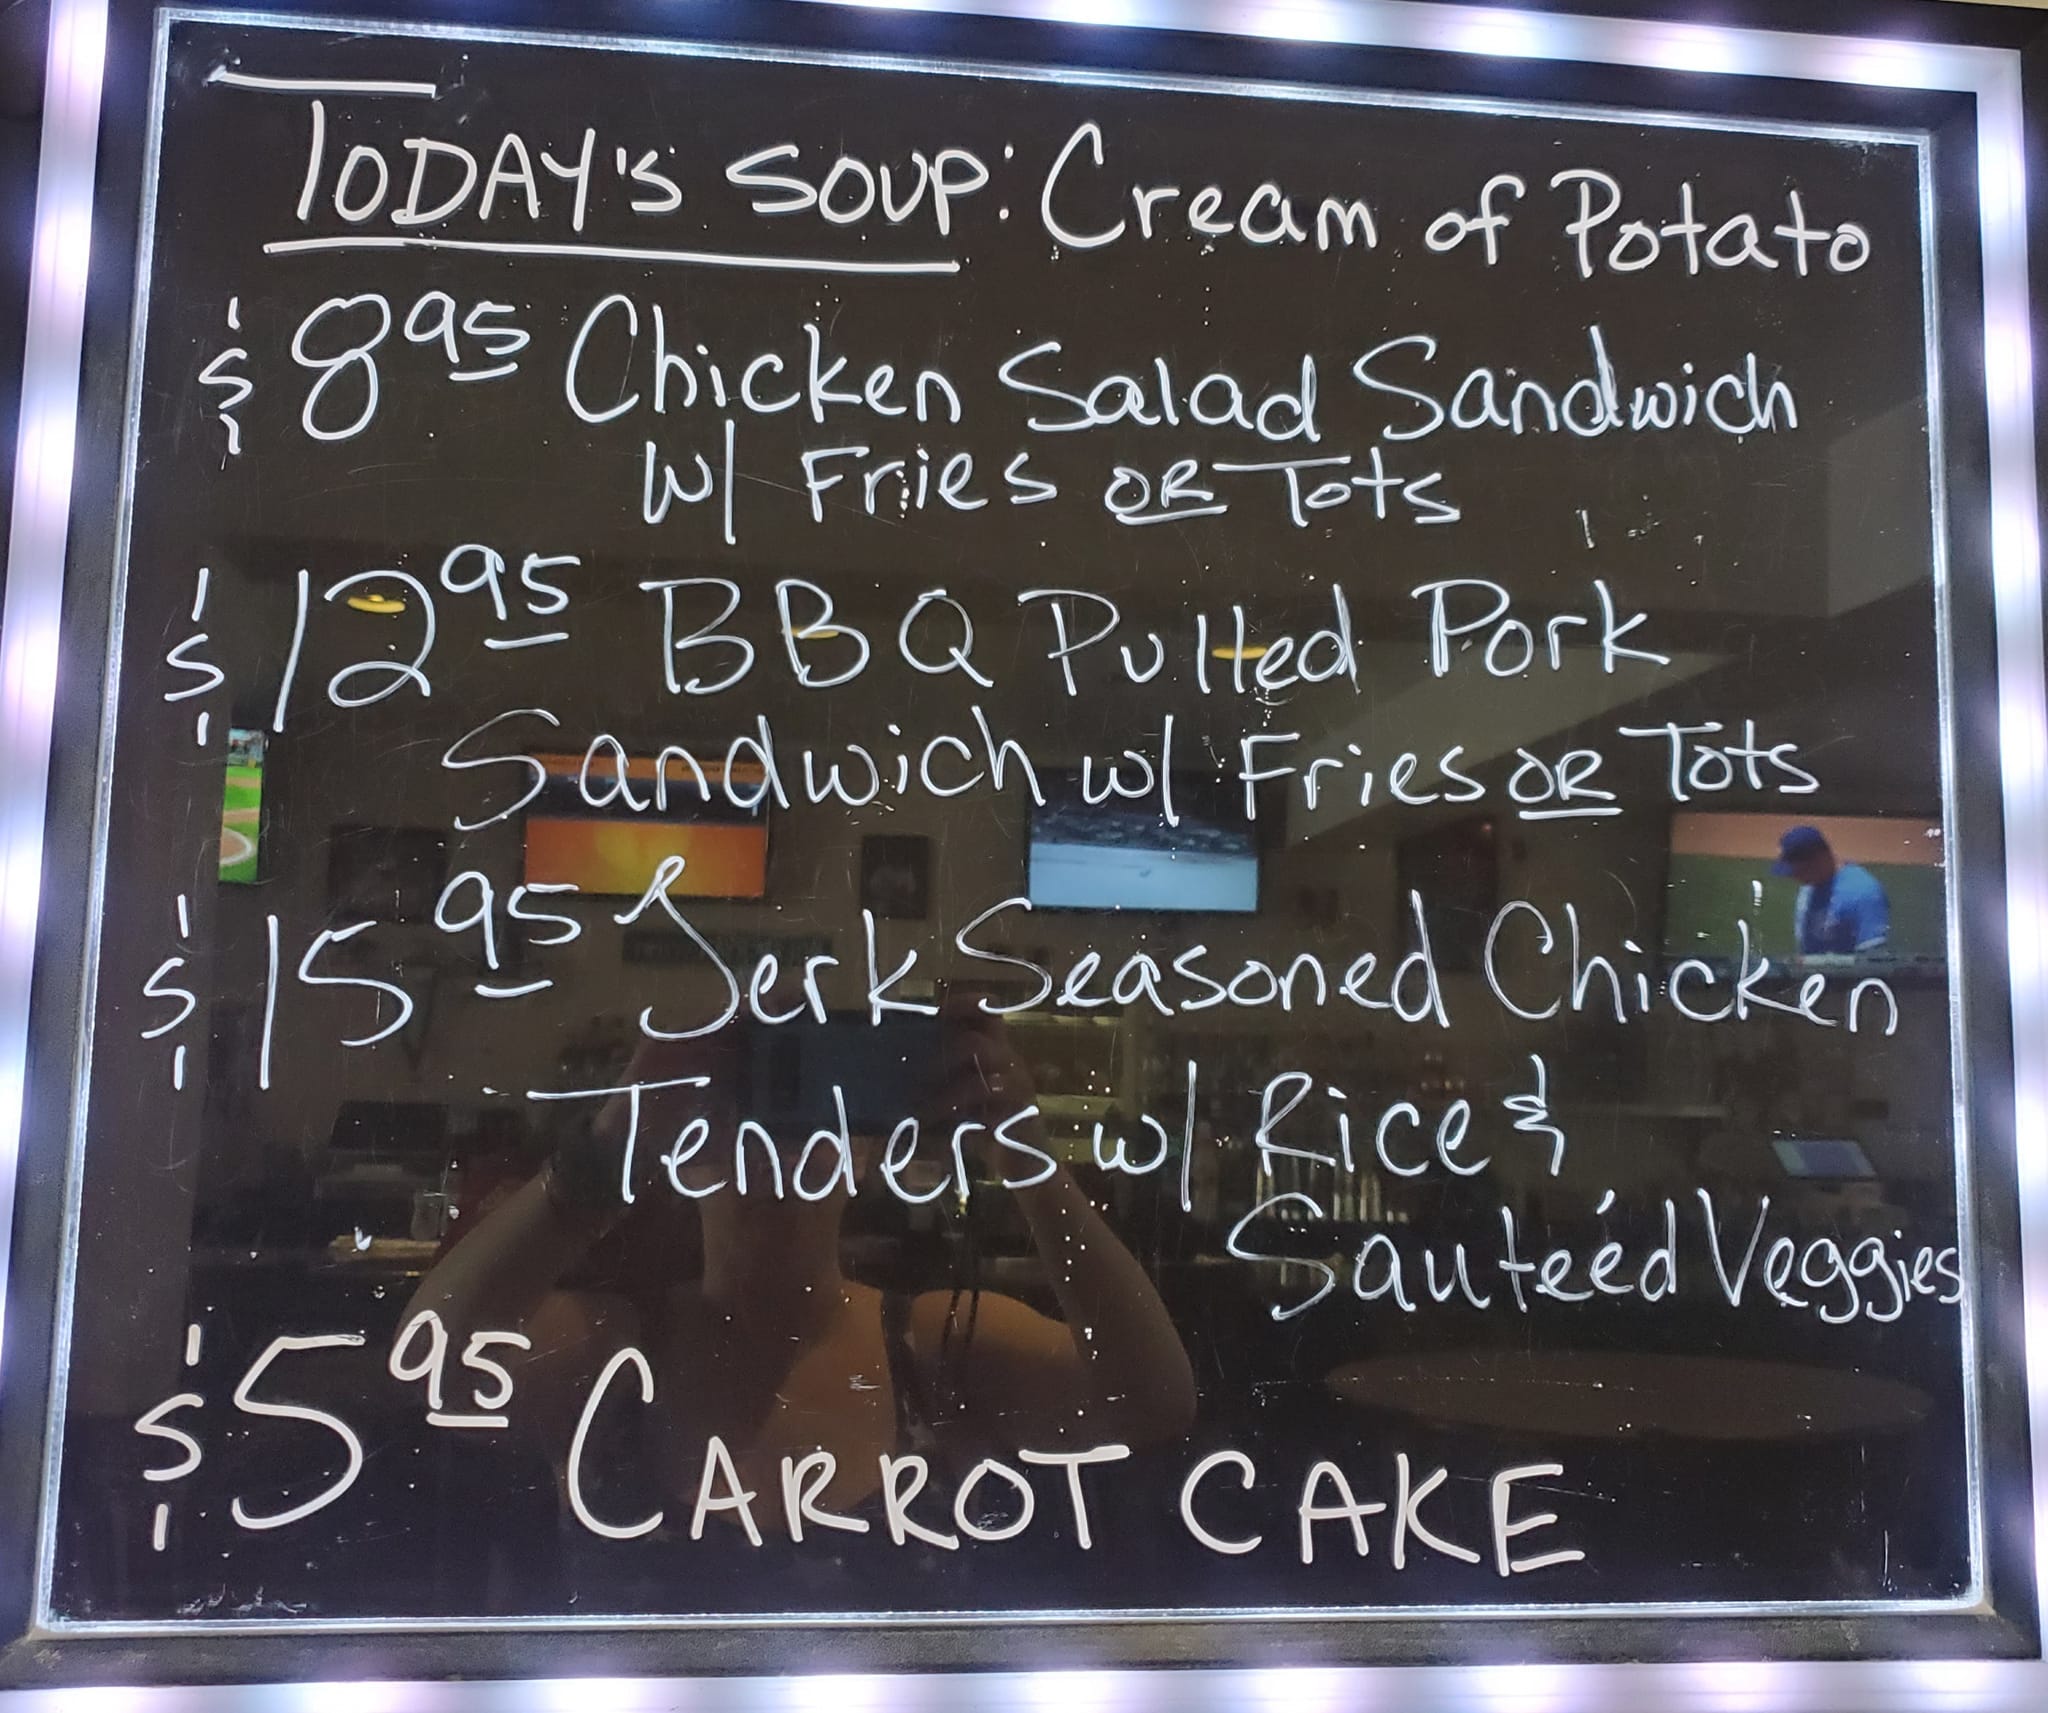 TODAY'S SOUP: Cream of Potato
$8.95 Chicken Salad Sandwich
w/ Fries OR Tots
$12.95 BBQ Pulled Pork
Sandwich w/ Fries OR Tots
$15.95 Jerk Seasoned Chicken
Tenders w/ Rice &
Sauteéd Veggies
$5.95 CARROT CAKE